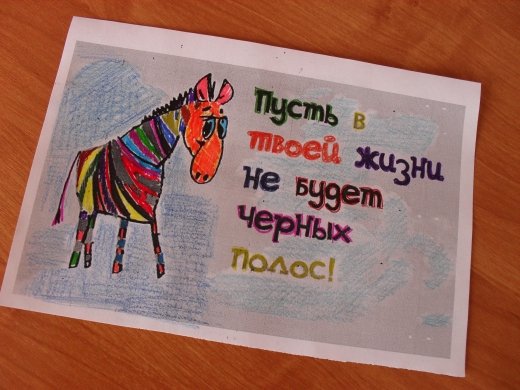 Пусть в
твоей жизни
не будет
черных
полос!